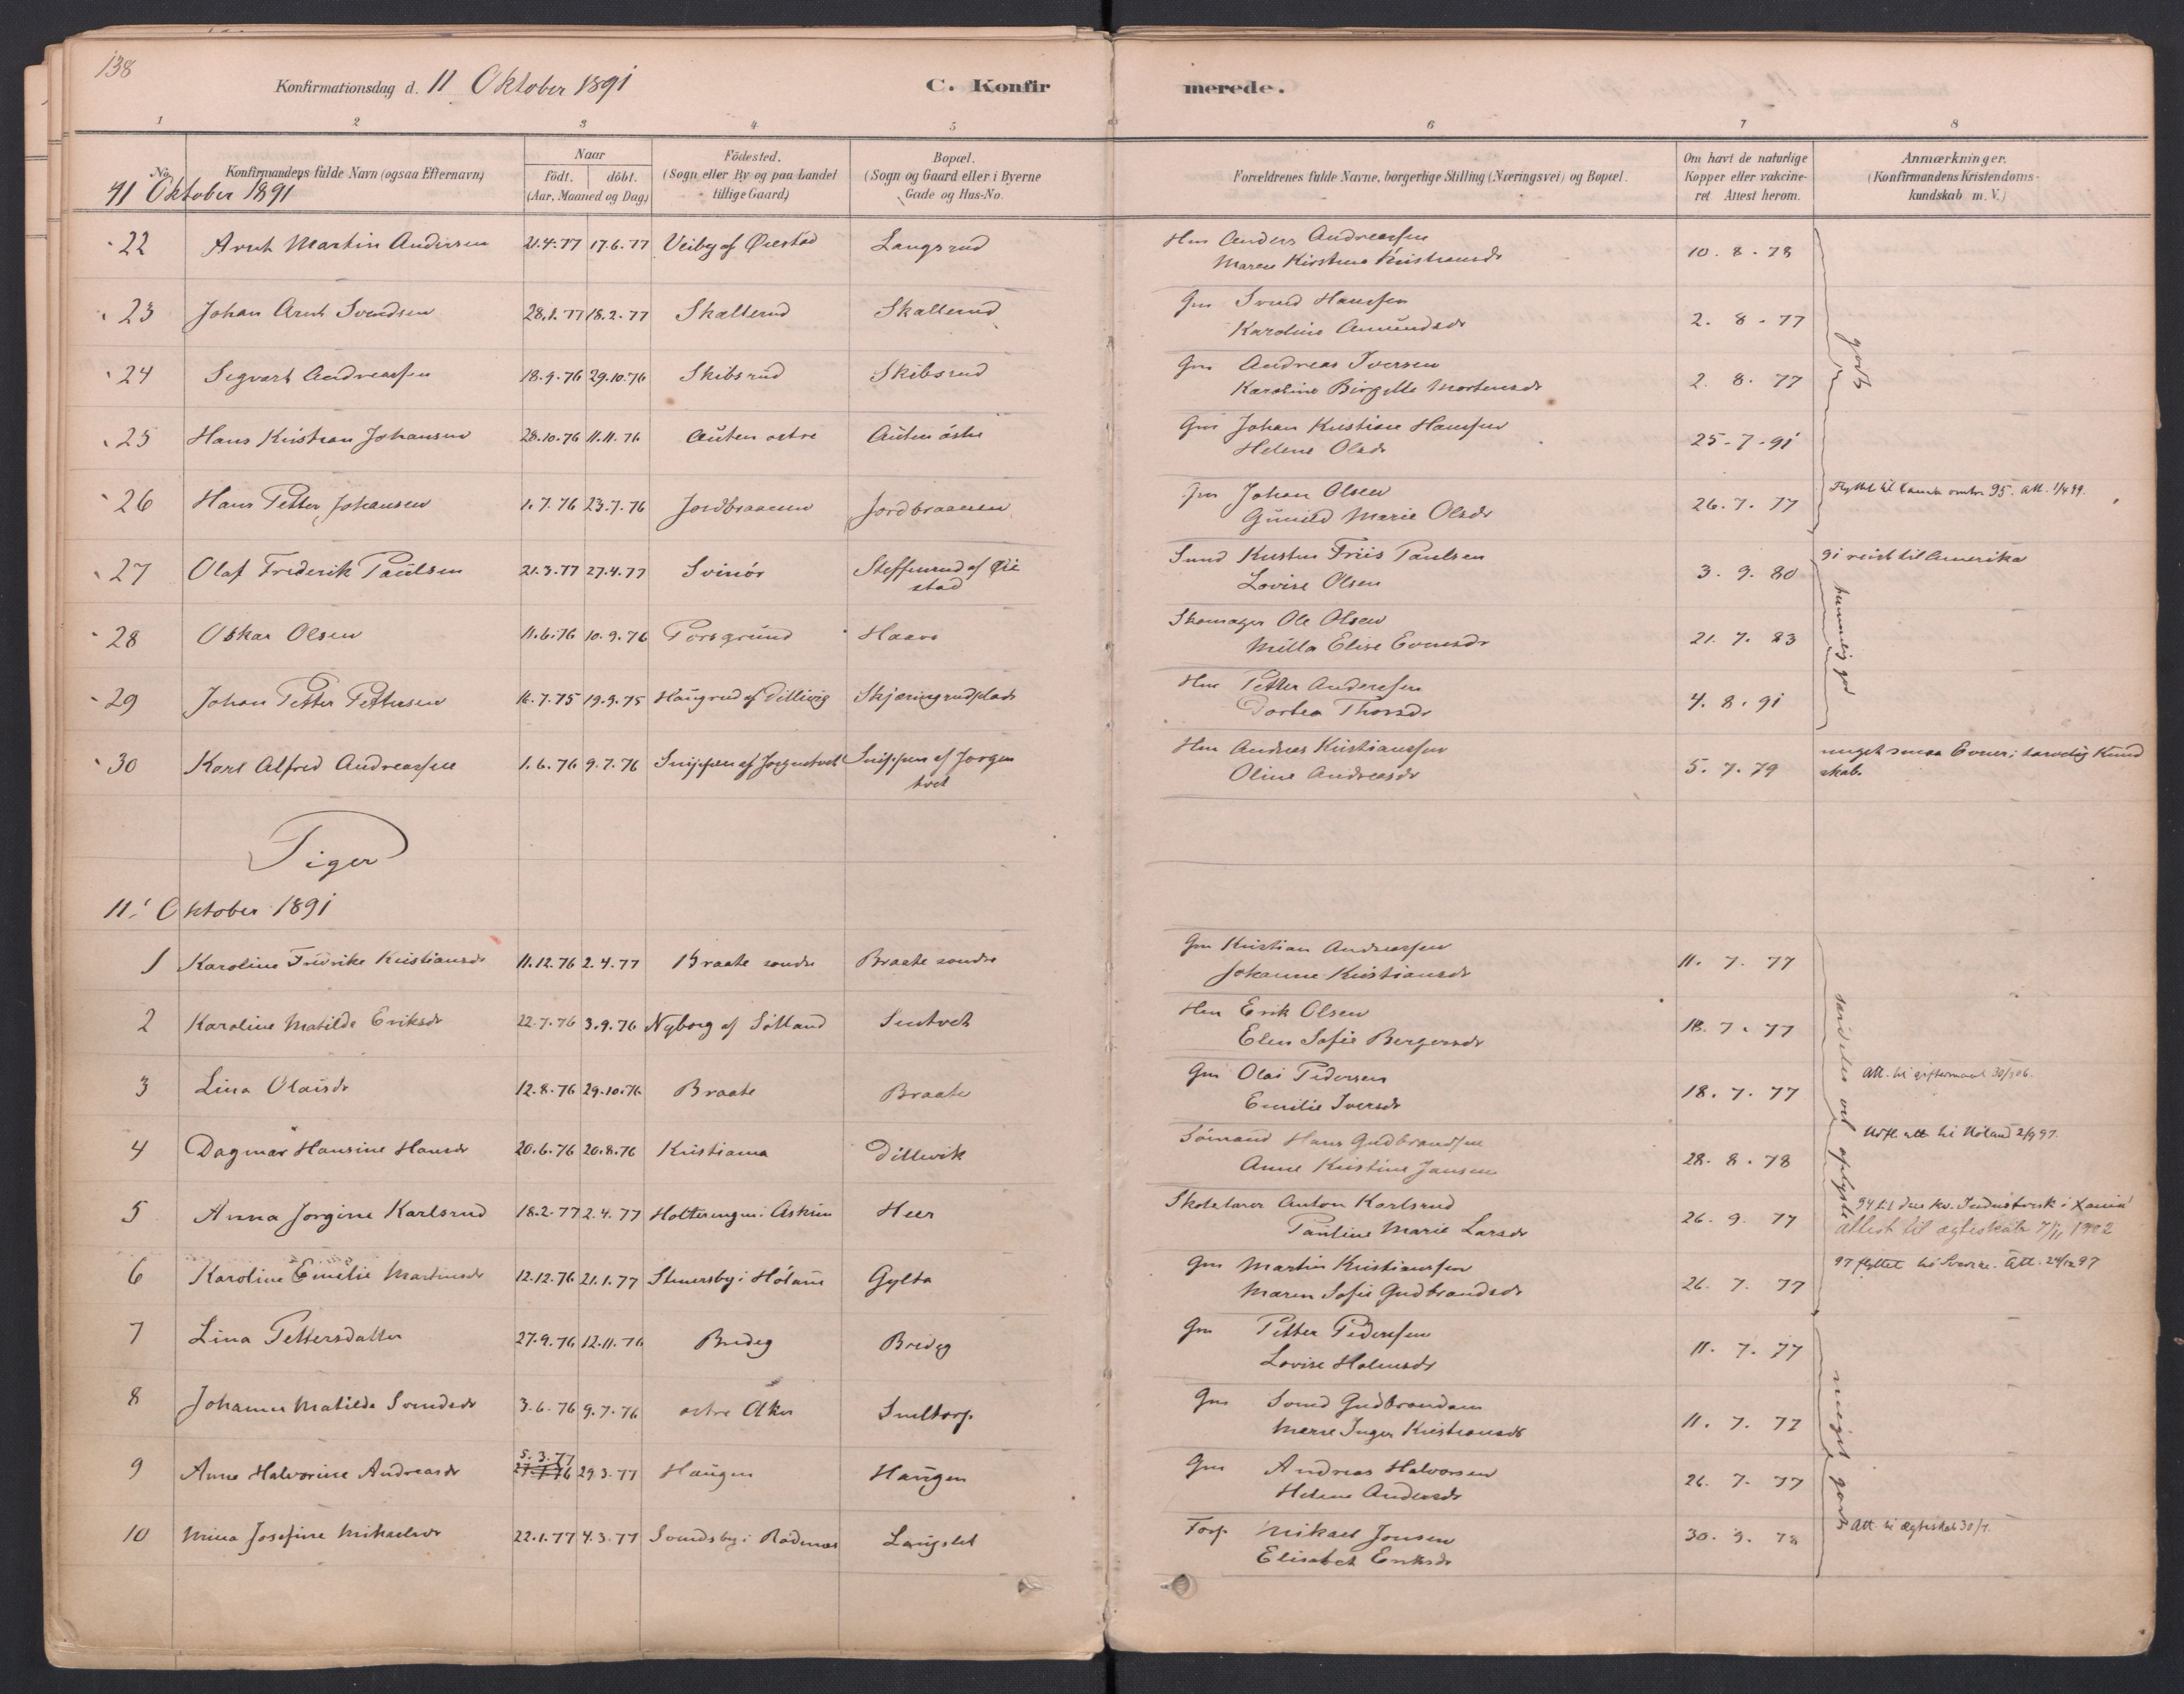 138
Konfirmationsdag d. 11 Oktober 1891
C. Konfirmerede.
1 2 3 4 5 6 7 8
No. Konfirmandens fulde Navn (ogsaa Efternavn)
Naar
födt. döbt.
(Aar, Maaned og Dag)
Födested.
(Sogn eller By og paa Landet
tillige Gaard)
Bopæl.
(Sogn og Gaard eller i Byerne
Gade og Hus-No.
Forældrenes fulde Navne, borgerlige Stilling (Næringsvei) og Bopæl.
Om havt de naturlige
Kopper eller vakcine-
ret Attest herom.
Anmærkninger.
(Konfirmandens Kristendoms-
kundskab m. V.)
11 Oktober 1891
22 Arnt Martin Andersen 21.4.77 17.6.77 Veiby af Ørestad Langsrud Hm Anders Andreassen 10.8.78
Maren Kirstine Kristiansdr
23 Johan Arnt Svendsen 28.1.77 18.2.77 Skallerud Skallerud Gm Svend Hanssen 2.8.77
Karoline Amundsdr
godt
24 Sigvart Andreassen 18.9.76 29.10.76 Skibsrud Skibsrud Gm Andreas Iversen 2.8.77
Karoline Birgitte Mortensdr
25 Hans Kristian Johansen 28.10.76 11.11.76 Auten östre Auten östre Gm Johan Kristian Hanssen 25-7-91
Helene Olsdr
26 Hans Petter Johansen 1.7.76 23.7.76 Jordbraaenen Jordbraaenen Gm Johan Olsen 26.7.77
Gunild Marie Olsdr
Flyttet til 95. Att. 1/4 99.
27 Olaf Frederik Paulsen 21.3.77 27.4.77 Svinör Steffensrud af Øie
stad
Kristen Friis Paulsen 3.9.80
Lovise Olsen
91 reist til Amerika
28 Oskar Olsen 11.6.76 10.9.76 Porsgrund Haavs Skomager Ole Olsen 21.7.83
Milla Elise Evensdr
temmelig god
29 Johan Petter Pettersen 16.7.75 19.9.75 Haugrud af Dillevig Skjæringrudplads Hm Petter Anderssen 4.8.91
Dortea Thorsdr
30 Karl Alfred Andreassen 1.6.76 9.7.76 Snippen af Jorgentvet Snippen af Jorgen
tvet
Hm Andreas Kristianssen 5.7.79
Oline Andreasdr
meget smaa Evner; tarvelig Kund
skab.
Piger
11. Oktober 1891
1 Karoline Fredrike Kristiansdr 11.12.76 2.4.77 Braate söndre Braate söndre Gm Kristian Andreassen 11.7.77
Johanne Kristiansdr
2 Karoline Matilde Eriksdr 22.7.76 3.9.76 Nyborg af Sölland Hm Erik Olsen 18.7.77
Elen Sofie Bergersdr
særdeles vel oplyste
3 Lina Olaisdr 12.8.76 29.10.76 Braate Braate Gm Olai Pedersen 18.7.77
Emilie Iversdr
Att. til giftermaal
4 Dagmar Hansine Hansdr 20.6.76 20.8.76 Kristiania Dillevik Sömand Hans Gudbrandsen 28.8.78
Anne Kristine Jansen
Utfl. att til Höland 2/9 97.
5 Anna Jorgine Karlsrud 18.2.77 2.4.77 i Askim Heer Skolelærer Anton Karlsrud 26.9.77
Pauline Marie Larsdr
94 til den kv. Industrisk. i Xania
attest til ægteskab 7/11 1902
6 Karoline Emelie Martinsdr 12.12.76 21.1.77 i Höland Gylta Gm Martin Kristianssen 26.7.77
Maren Sofie Gudbrandsdr
97 flyttet til Att. 24/12 97
7 Lina Pettersdatter 27.9.76 12.11.76 Bredeg Bredeg Gm Petter Pederssen 11.7.77
Lovise Holmsdr
8 Johanne Matilde Svendsdr 3.6.76 9.7.76 östre Aker Smeltorp Gm Svend Gudbrandsen 11.7.77
Marie Inger Kristiansdr
meget godt
9 Anne Halvorine Andreasdr 5.3.77 29.3.77 Haugen Haugen Gm Andreas Halvorsen 26.7.77
Helene Andersdr
10 Mina Josefine Mikaelsdr 22.1.77 4.3.77 Svendsby i Rödenæs Langslet Forp. Mikael Jonsen 30.9.78
Elisabet Eriksdr
Att. til ægteskab 30/7.